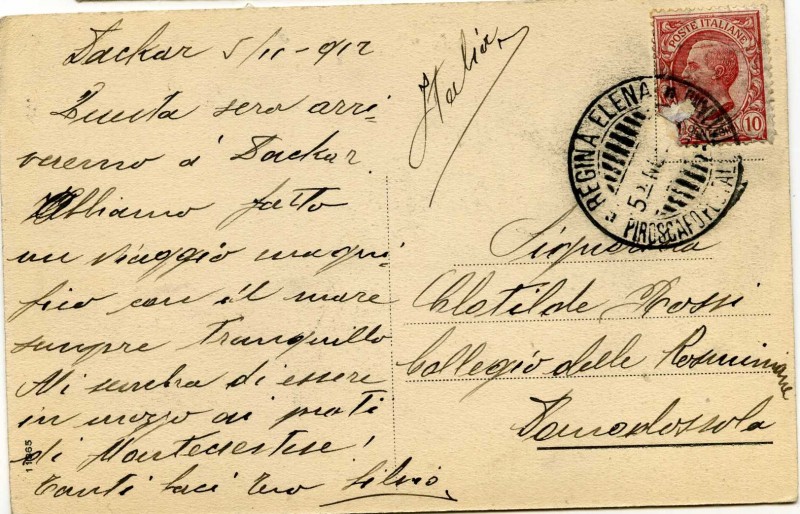 Dackar 5/11-912
Questa sera arri-
veremo á Dackar.
Abbiamo fatto
un viaggio magni-
fico con il mare
sempre tranquillo
Mi sembra di essere
in mezzo ai prati
di
Tanti baci tuo Silvio
Italia
POSTE ITALIANE
10
REGINA ELENA
PIROSCAFO POSTALE
Signorina
Clotilde Rossi
Collegio delle Rosminiane
Domodossola
11865